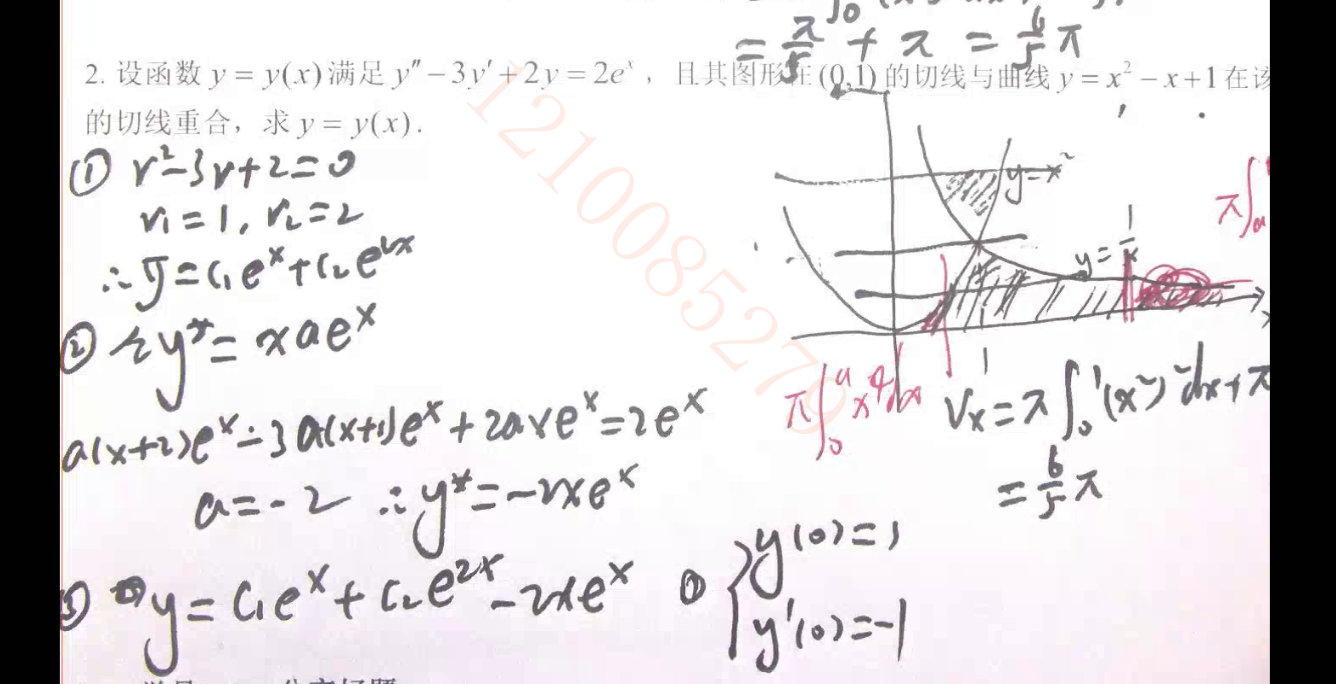 = π/5 + π = 6/5 π
2. 设函数 y = y(x) 满足 y″ − 3y′ + 2y = 2eˣ ，且其图形在 (0,1) 的切线与曲线 y = x² − x + 1 在该
的切线重合，求 y = y(x) .
① r² − 3r + 2 = 0
r₁ = 1, r₂ = 2
∴ ȳ = C₁eˣ + C₂e²ˣ
② 令 y* = xaeˣ
a(x+2)eˣ − 3a(x+1)eˣ + 2axeˣ = 2eˣ
a = −2 ∴ y* = −2xeˣ
③ y = C₁eˣ + C₂e²ˣ − 2xeˣ
④ { y(0) = 1
y′(0) = −1
y = x²
y = 1/x
1
π∫₀ᵃ x⁴dx
Vₓ = π∫₀¹ (x²)² dx + π
= 6/5 π
1210085279